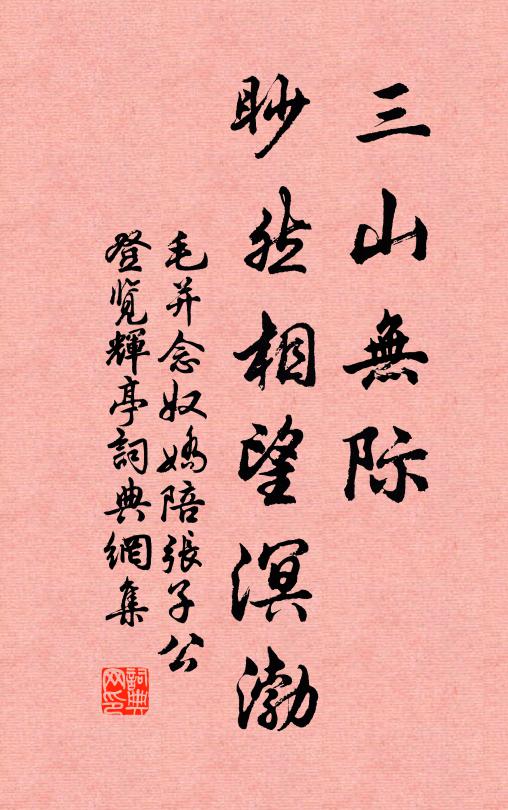 三山無际
眇然相望溟渤
毛并念奴嬌陪張子公
登览輝亭詞典網集
詞典
网印